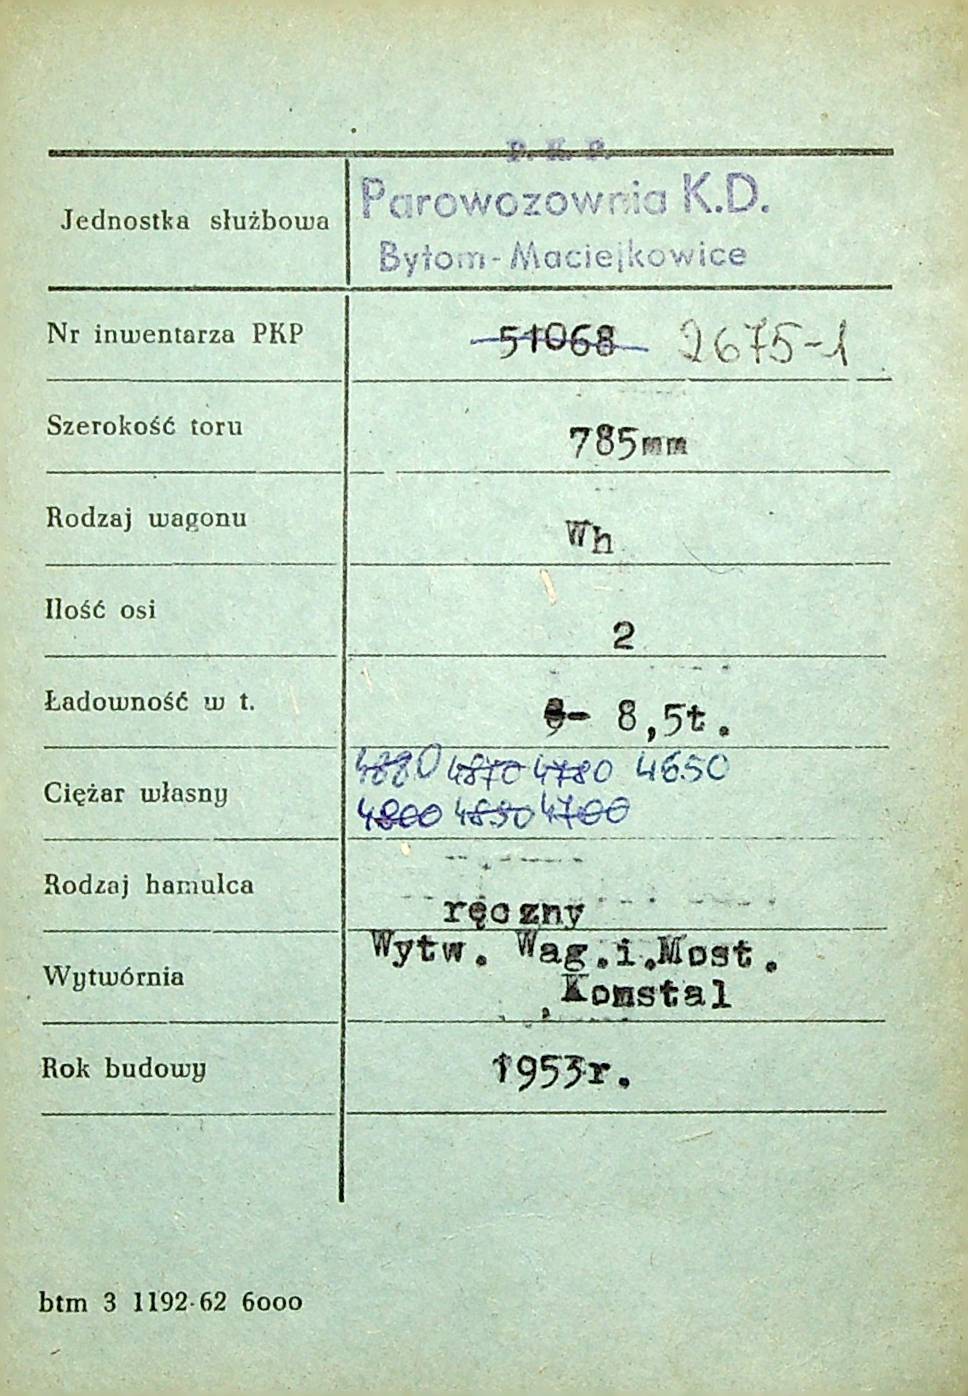 P. K. P.
Jednostka służbowa Parowozownia K.D.
Bytom-Maciejkowice
Nr inwentarza PKP 51068 2675-1
Szerokość toru 785mm
Rodzaj wagonu Wh
Ilość osi 2
Ładowność w t. 8,5t.
4880 4870 4780 4650
Ciężar własny
4800 4850 4700
Rodzaj hamulca ręczny
Wytw. Wag.i.Most.
Wytwórnia
Komstal
Rok budowy 1953r.
btm 3 1192-62 6000